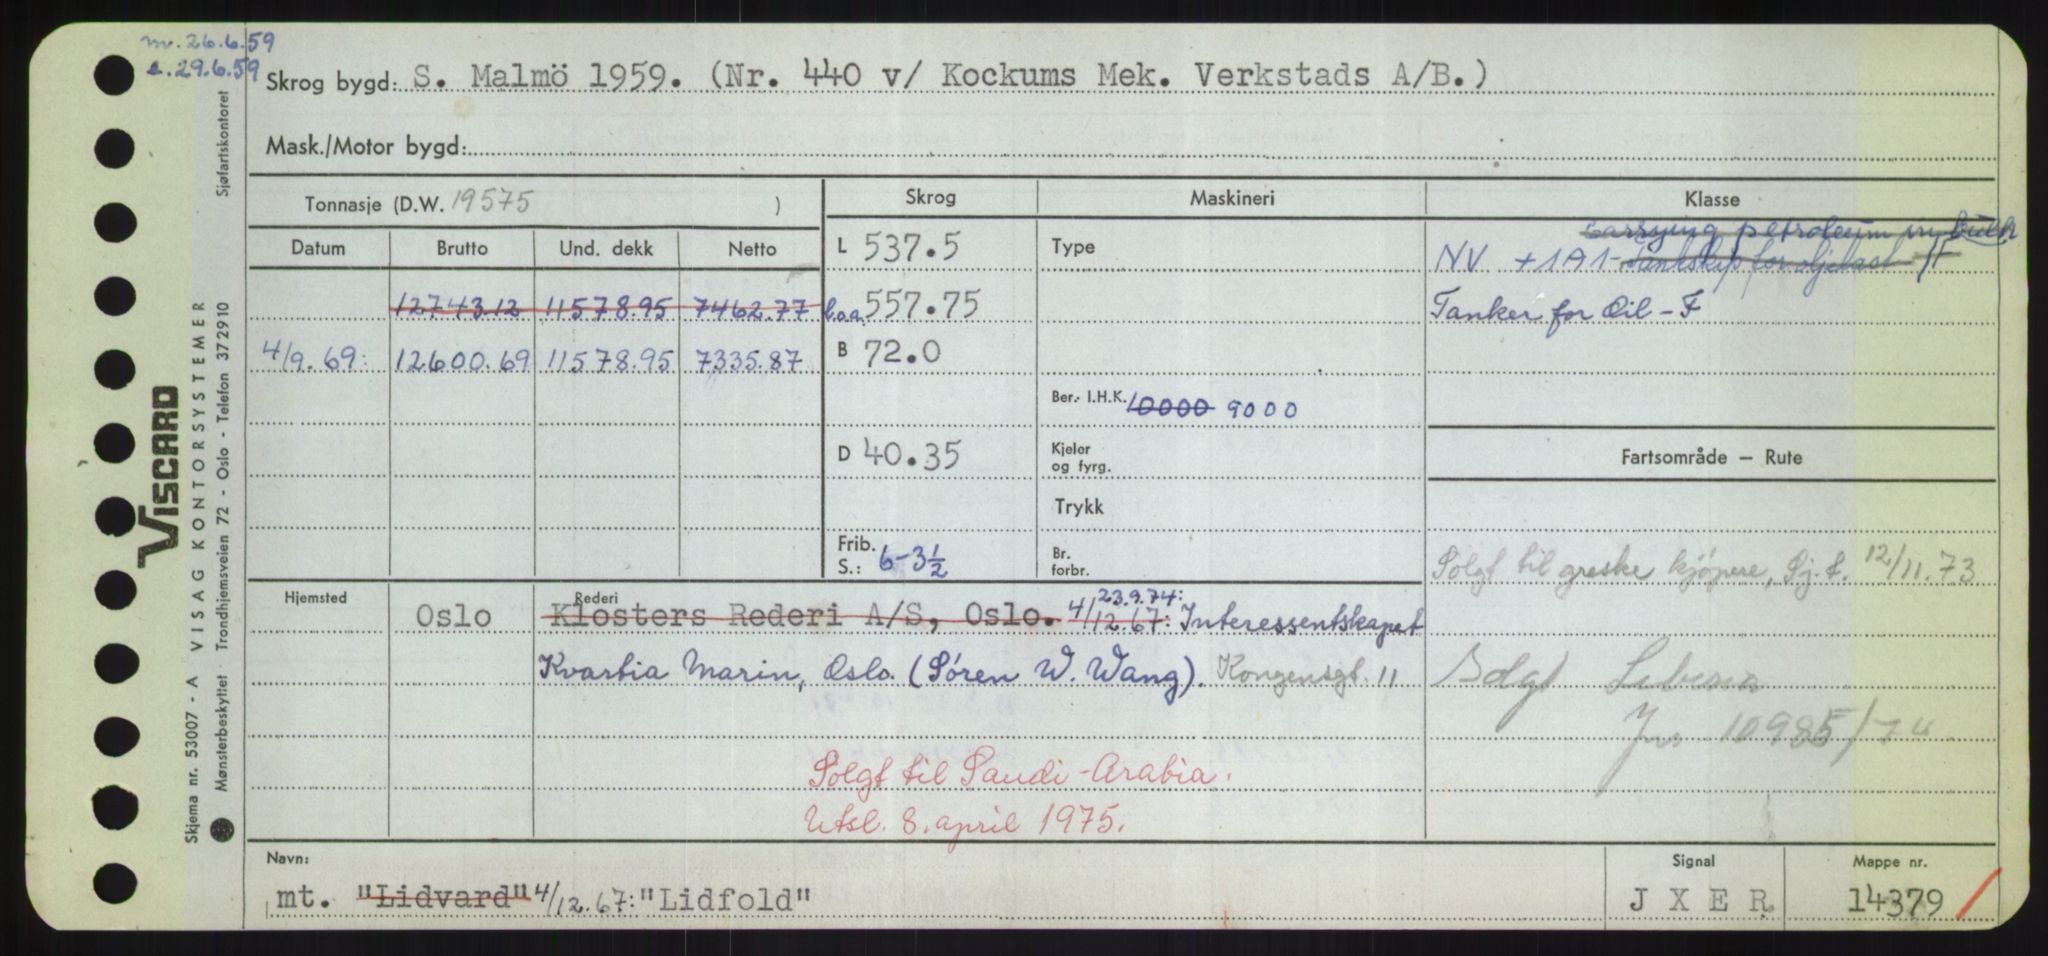 m. 26.6.59
e. 29.6.59
Skrog bygd: S. Malmö 1959. (Nr. 440 v/ Kockums Mek. Verkstads A/B.)
Mask./Motor bygd:
Tonnasje (D.W. 19575 )
Skrog
Maskineri
Klasse
Datum Brutto Und. dekk Netto
12743.12 11578.95 7462.77
4/9.69: 12600.69 11578.95 7335.87
L 537.5
l.o.a. 557.75
B 72.0
D 40.35
Frib. S.: 6-3½
Type
Ber. I.H.K. 10000 9000
Kjeler
og fyrg.
Trykk
Br.
forbr.
carrying petroleum in bulk
NV +1A1- tankskip for oljelast F
Tanker for Oil - F
Fartsområde — Rute
Solgt til greske kjøpere, Sj.t. 12/11.73
Solgt
Jnr 10985/74
Hjemsted
Oslo
Rederi
Klosters Rederi A/S, Oslo. 4/12.67: 23.9.74: Interessentskapet
Kvarbia Marin, Oslo. (Sören W. Wang). Kongensgt. 11
Solgt til Saudi-Arabia.
Utsl. 8. april 1975.
Navn:
mt. "Lidvard" 4/12.67: "Lidfold"
Signal
JXER
Mappe nr.
14379
VISCARD
Skjema nr. 53007 - A VISAG KONTORSYSTEMER
Mønsterbeskyttet Trondhjemsveien 72 - Oslo - Telefon 372910 Sjøfartskontoret